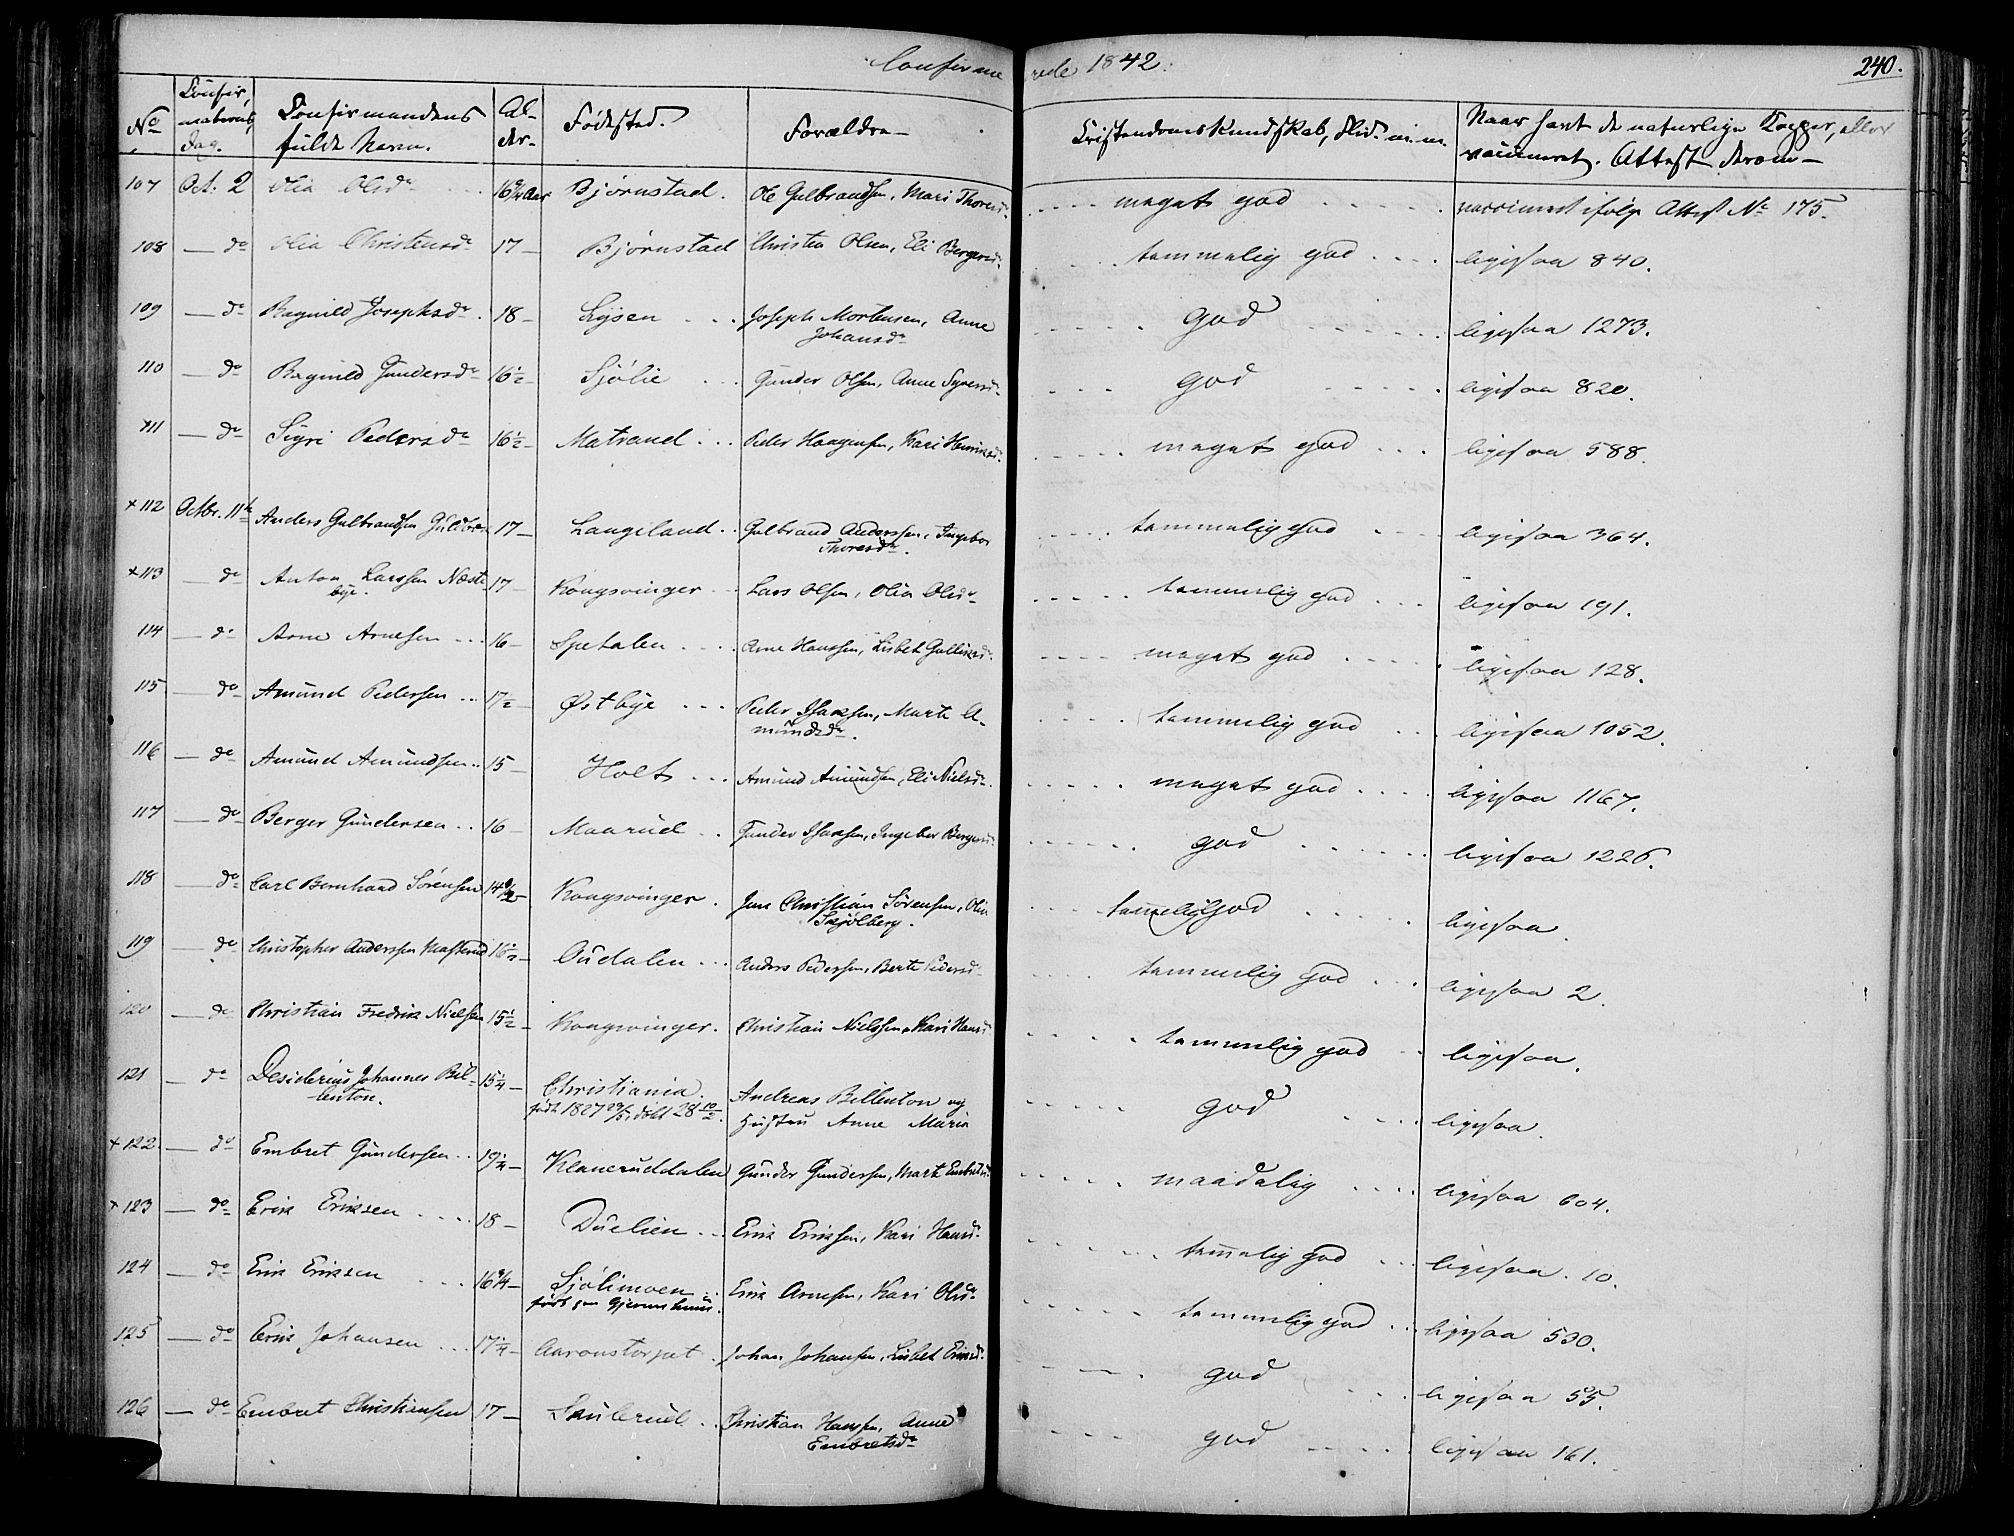 Confirmerede 1842. 240.
No Confirmations Dag. Confirmandens fulde Navn. Alder Fødested. Forældre Kristendomskundskab, Flid m.m. Naar havt de naturlige Kopper, eller vaccineret. Attest derom
107 Oct. 2 Olia Olsdr 16 3/4 Aar Bjørnstad. Ole Gulbrandsen, Mari Thoresdr meget god vaccineret ifølge Attest No 175.
108 do Olia Christensdr 17 Bjørnstad Christen Olsen, Eli Bergersdr temmelig god ligesaa 840.
109 do Ragnild Josephsdr 18 Lysen Joseph Mortensen, Anne
Johansdr god ligesaa 1273.
110 do Ragnild Gundersdr 16 1/2 Sjølie Gunder Olsen, Anne Syversdr god ligesaa 820.
111 do Sigri Pedersdr 16 1/2 Matrand Peder Haagensen, Kari Henriksdr meget god ligesaa 588.
+112 Octbr. 11te Anders Gulbrandsen 17 Langeland Gulbrand Anderssen, Ingebor
Thoresdr temmelig god ligesaa 364.
+113 do Anton Larssen Næste
bye. 17 Kongsvinger Lars Olsen, Olia Olsdr temmelig god ligesaa 191.
114 do Arne Arnesen 16 Spetalen Arne Hanssen, Lisbet Gulliksdr meget god ligesaa 128.
115 do Amund Pedersen 17 1/2 Østbye Peder Isaksen, Marte A-
mundsdr. temmelig god ligesaa 1052.
116 do Amund Amundsen 15 Holt Amund Amundsen, Eli Nielsdr meget god ligesaa 1167.
117 do Berger Gundersen 16 Maarud Gunder Isaksen, Ingebor Bergersdr god ligesaa 1226.
118 do Carl Bernhard Sørensen 14 1/2 Kongsvinger Jens Christian Sørensen, Olia
Skjølberg. temmelig god ligesaa.
119 do Christopher Anderssen 16 1/2 Oudalen Anders Pedersen, Berte Pedersdr temmelig god ligesaa 2.
120 do Christian Fredrik Nielsen 15 1/2 Kongsvinger. Christian Nielssen, Kari Hansdr temmelig god ligesaa.
121 do Desiderius Johannes Bil-
lenton. 15 1/4 Christiania. Andreas Billenton og
født 1827 døbt 28 Hustru Anne Maria god ligesaa.
+122 do Embret Gundersen 19 1/4 Klaneruddalen Gunder Gundersen, Marte Embretsdr maadelig ligesaa 604.
+123 do Erik Eriksen 18 Duelien Erik Erikssen, Kari Hansdr temmelig god ligesaa 10.
124 do Erik Eriksen 16 3/4 Sjølimoen
født paa Gjermshuus. Erik Arnesen, Kari Olsdr temmelig god ligesaa 530.
125 do Erik Johansen 17 1/4 Aaronstorpet Johan Johansen, Lisbet Eriksdr god ligesaa 55.
126 do Embret Christiansen 17 Skulerud Christian Hanssen, Anne
Embretsdr god ligesaa 161.